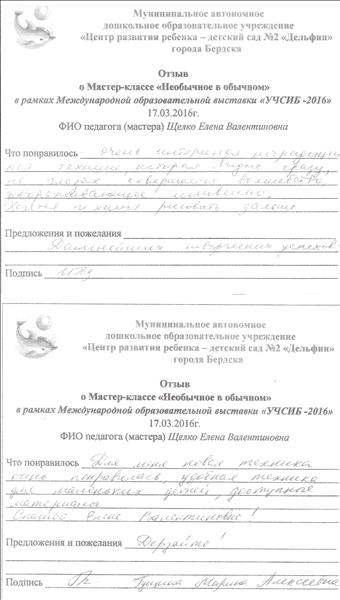 Муниципальное автономное
дошкольное образовательное учреждение
«Центр развития ребенка – детский сад №2 «Дельфин»
города Бердска
Отзыв
о Мастер-классе «Необычное в обычном»
в рамках Международной образовательной выставки «УЧСИБ -2016»
17.03.2016г.
ФИО педагога (мастера) Щелко Елена Валентиновна
Что понравилось очень интересная нетрадицион
ная техника, которая видна сразу,
на глазах совершается волшебство,
завораживающее мгновение.
Хочется и самим рисовать дальше.
Предложения и пожелания
Дальнейших творческих успехов.
Подпись
Муниципальное автономное
дошкольное образовательное учреждение
«Центр развития ребенка – детский сад №2 «Дельфин»
города Бердска
Отзыв
о Мастер-классе «Необычное в обычном»
в рамках Международной образовательной выставки «УЧСИБ -2016»
17.03.2016г.
ФИО педагога (мастера) Щелко Елена Валентиновна
Что понравилось Для меня новая техника
очень понравилась, удобная техника
для маленьких детей, доступные
материалы
Спасибо Елене Валентиновне!
Предложения и пожелания Дерзайте!
Подпись Марина Алексеевна